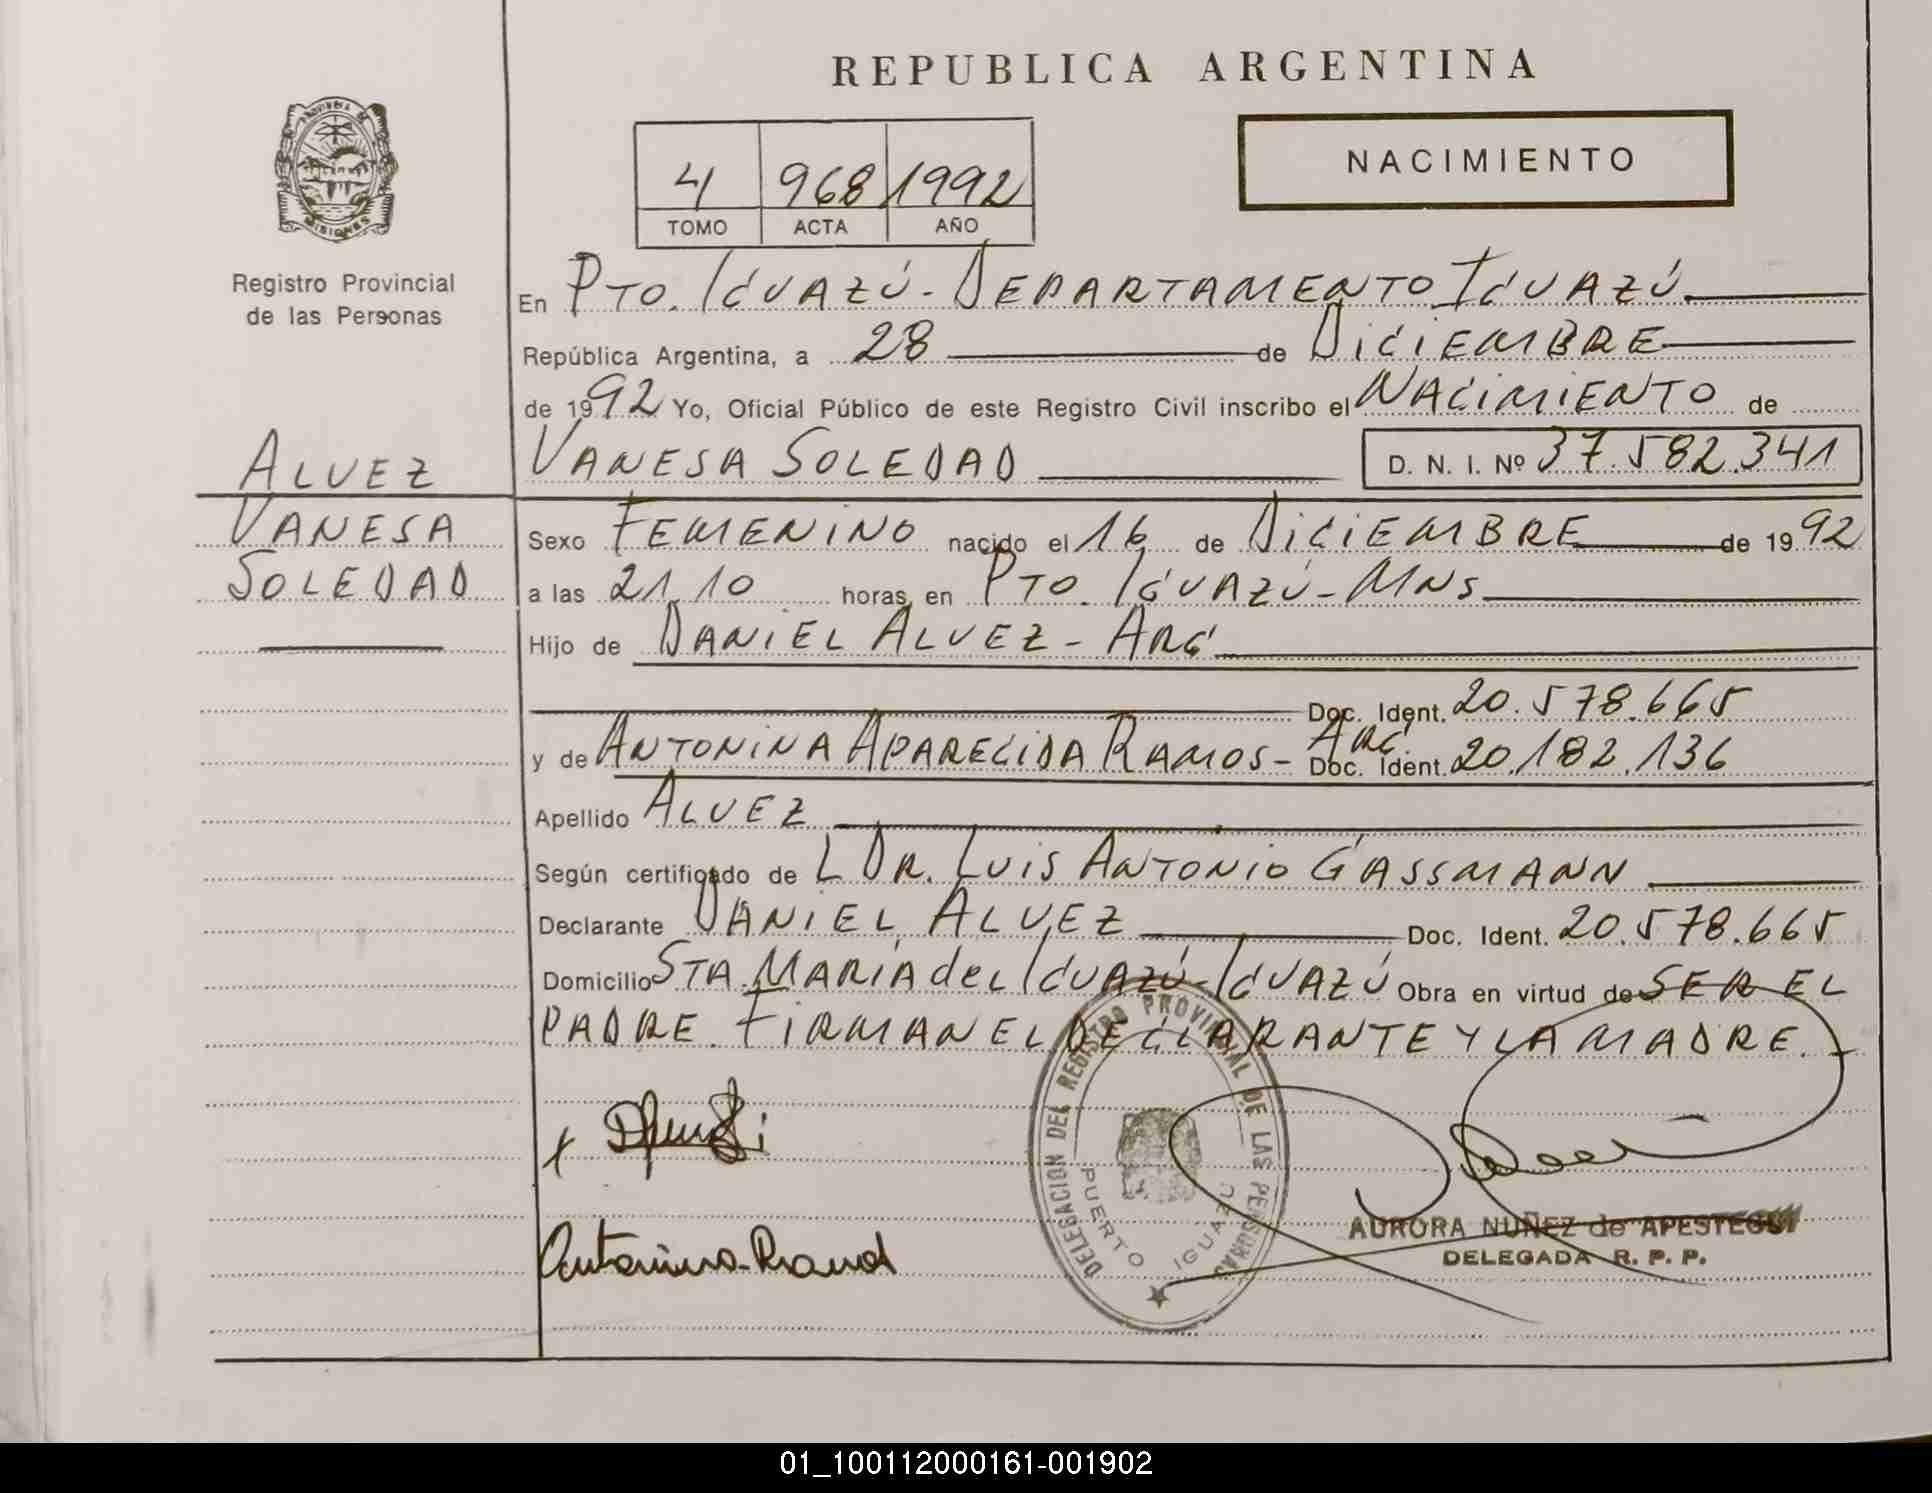 REPUBLICA ARGENTINA
NACIMIENTO
4 968 1992
TOMO ACTA AÑO
MISIONES
Registro Provincial
de las Personas
ALVEZ
VANESA
SOLEDAD
En PTO. IGUAZÚ - DEPARTAMENTO IGUAZÚ.
República Argentina, a 28 de DICIEMBRE
de 1992 Yo, Oficial Público de este Registro Civil inscribo el NACIMIENTO de
VANESA SOLEDAD D. N. I. Nº 37.582.341
Sexo FEMENINO nacido el 16 de DICIEMBRE de 1992
a las 21.10 horas, en PTO. IGUAZÚ - MNS
Hijo de DANIEL ALVEZ - ARG
Doc. Ident. 20.578.665
y de ANTONINA APARECIDA RAMOS - ARG. Doc. Ident. 20.182.136
Apellido ALVEZ
Según certificado de L DR. LUIS ANTONIO GASSMANN
Declarante DANIEL ALVEZ Doc. Ident. 20.578.665
Domicilio STA. MARIA del IGUAZÚ - IGUAZÚ Obra en virtud de SER EL
PADRE. FIRMAN EL DECLARANTE Y LA MADRE.
DELEGACION DEL REGISTRO PROVINCIAL DE LAS PERSONAS
PUERTO IGUAZU
AURORA NUÑEZ de APESTEGUI
DELEGADA R. P. P.
01_100112000161-001902